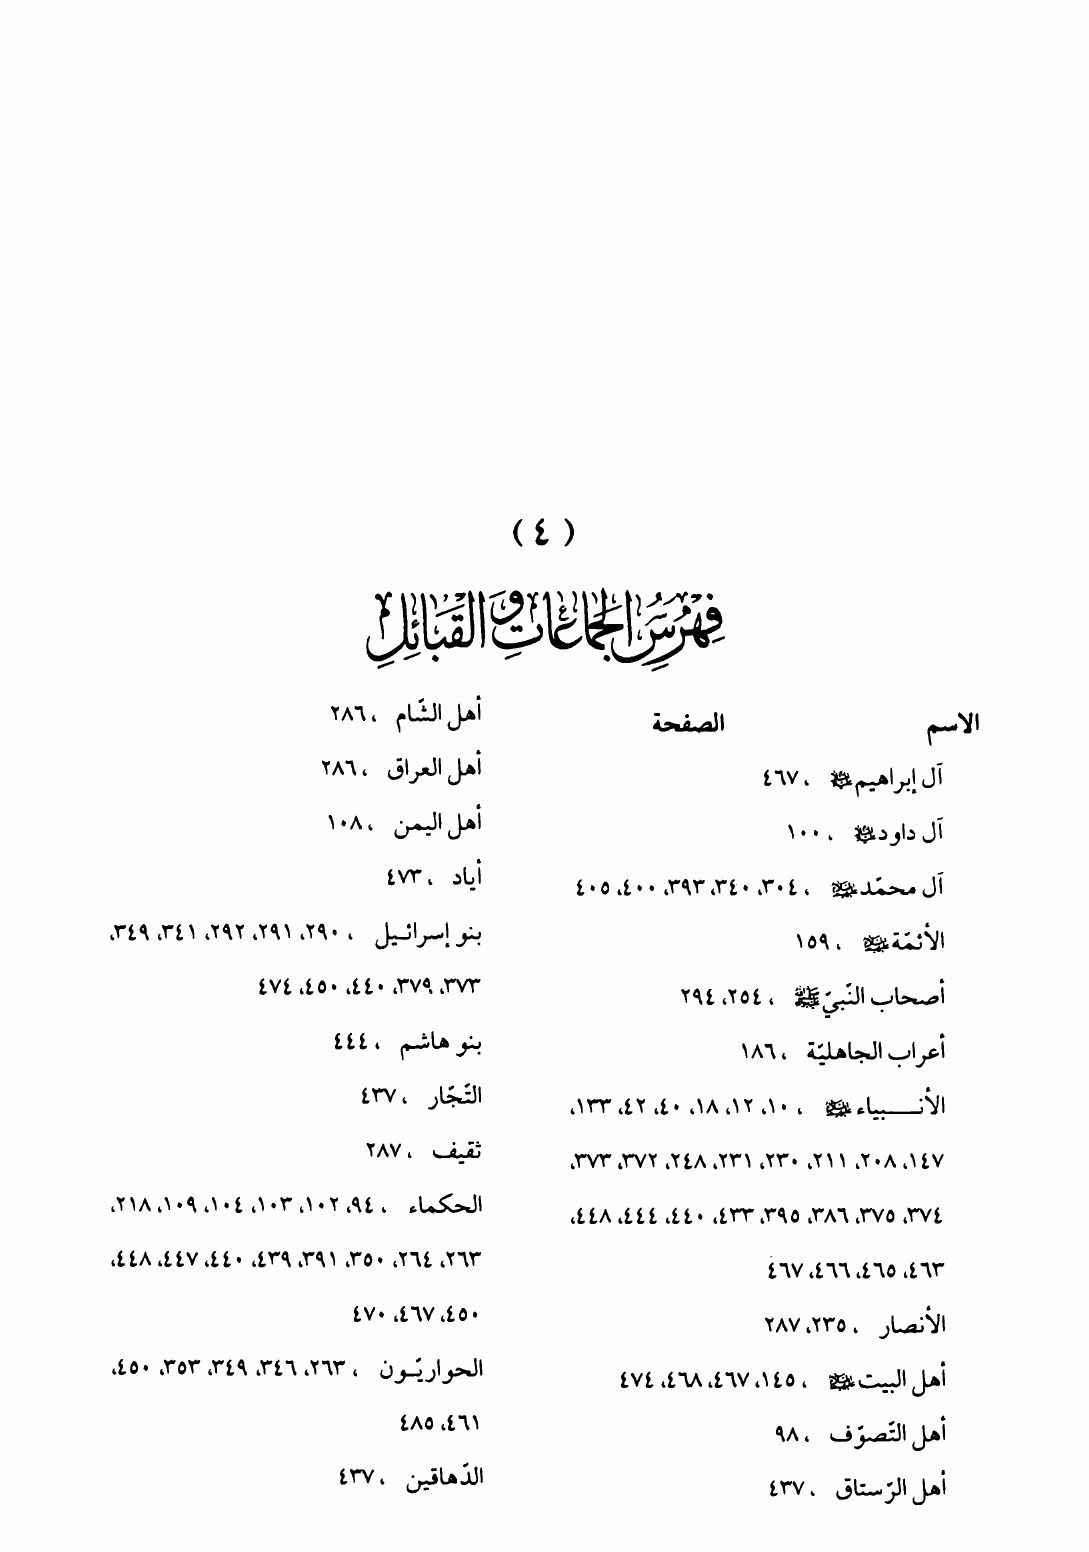 ( ٤ )
فِهْرِسُ الجَمَاعَاتِ وَالقَبَائِلِ
الاسم الصفحة
آل إبراهيم ، ٤٦٧
آل داود ، ١٠٠
آل محمّد ، ٣٠٤، ٣٤٠، ٣٩٣، ٤٠٠، ٤٠٥
الأئمّة ، ١٥٩
أصحاب النّبيّ ﷺ ، ٢٥٤، ٢٩٤
أعراب الجاهليّة ، ١٨٦
الأنـــبياء ، ١٠، ١٢، ١٨، ٤٠، ٤٢، ١٣٣،
١٤٧، ٢٠٨، ٢١١، ٢٣٠، ٢٣١، ٢٤٨، ٣٧٢، ٣٧٣،
٣٧٤، ٣٧٥، ٣٨٦، ٣٩٥، ٤٣٣، ٤٤٠، ٤٤٤، ٤٤٨،
٤٦٣، ٤٦٥، ٤٦٦، ٤٦٧
الأنصار ، ٢٣٥، ٢٨٧
أهل البيت ، ١٤٥، ٤٦٧، ٤٦٨، ٤٧٤
أهل التّصوّف ، ٩٨
أهل الرّستاق ، ٤٣٧
أهل الشّام ، ٢٨٦
أهل العراق ، ٢٨٦
أهل اليمن ، ١٠٨
أياد ، ٤٧٣
بنو إسرائـيل ، ٢٩٠، ٢٩١، ٢٩٢، ٣٤١، ٣٤٩،
٣٧٣، ٣٧٩، ٤٤٠، ٤٥٠، ٤٧٤
بنو هاشم ، ٤٤٤
التّجّار ، ٤٣٧
ثقيف ، ٢٨٧
الحكماء ، ٩٤، ١٠٢، ١٠٣، ١٠٤، ١٠٩، ٢١٨،
٢٦٣، ٢٦٤، ٣٥٠، ٣٩١، ٤٣٩، ٤٤٠، ٤٤٧، ٤٤٨،
٤٥٠، ٤٦٧، ٤٧٠
الحواريّـون ، ٢٦٣، ٣٤٦، ٣٤٩، ٣٥٣، ٤٥٠،
٤٦١، ٤٨٥
الدّهاقين ، ٤٣٧